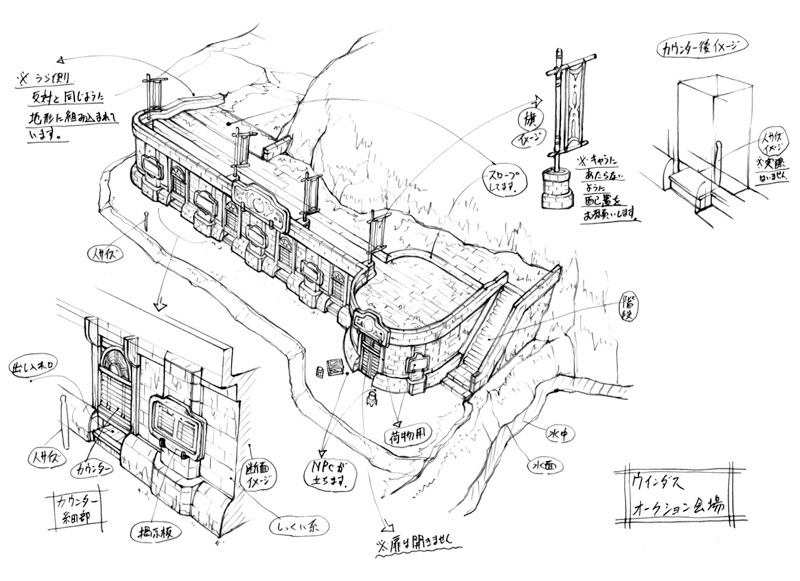 ※ ラジ側り
反対と同じように
地形に組み込まれて
います。
人サイズ
旗
イメージ
※ キャラに
あたらない
ように
配置を
お願いします。
カウンター後イメージ
人サイズ
イメージ
※実際
はいません
スロープ
してます。
階段
出し入れ口
人サイズ
カウンター
カウンター
細部
掲示板
断面
イメージ
しっくい系
NPCが
立ちます。
荷物用
※扉は開きません
水中
水面
ウインダス
オークション会場